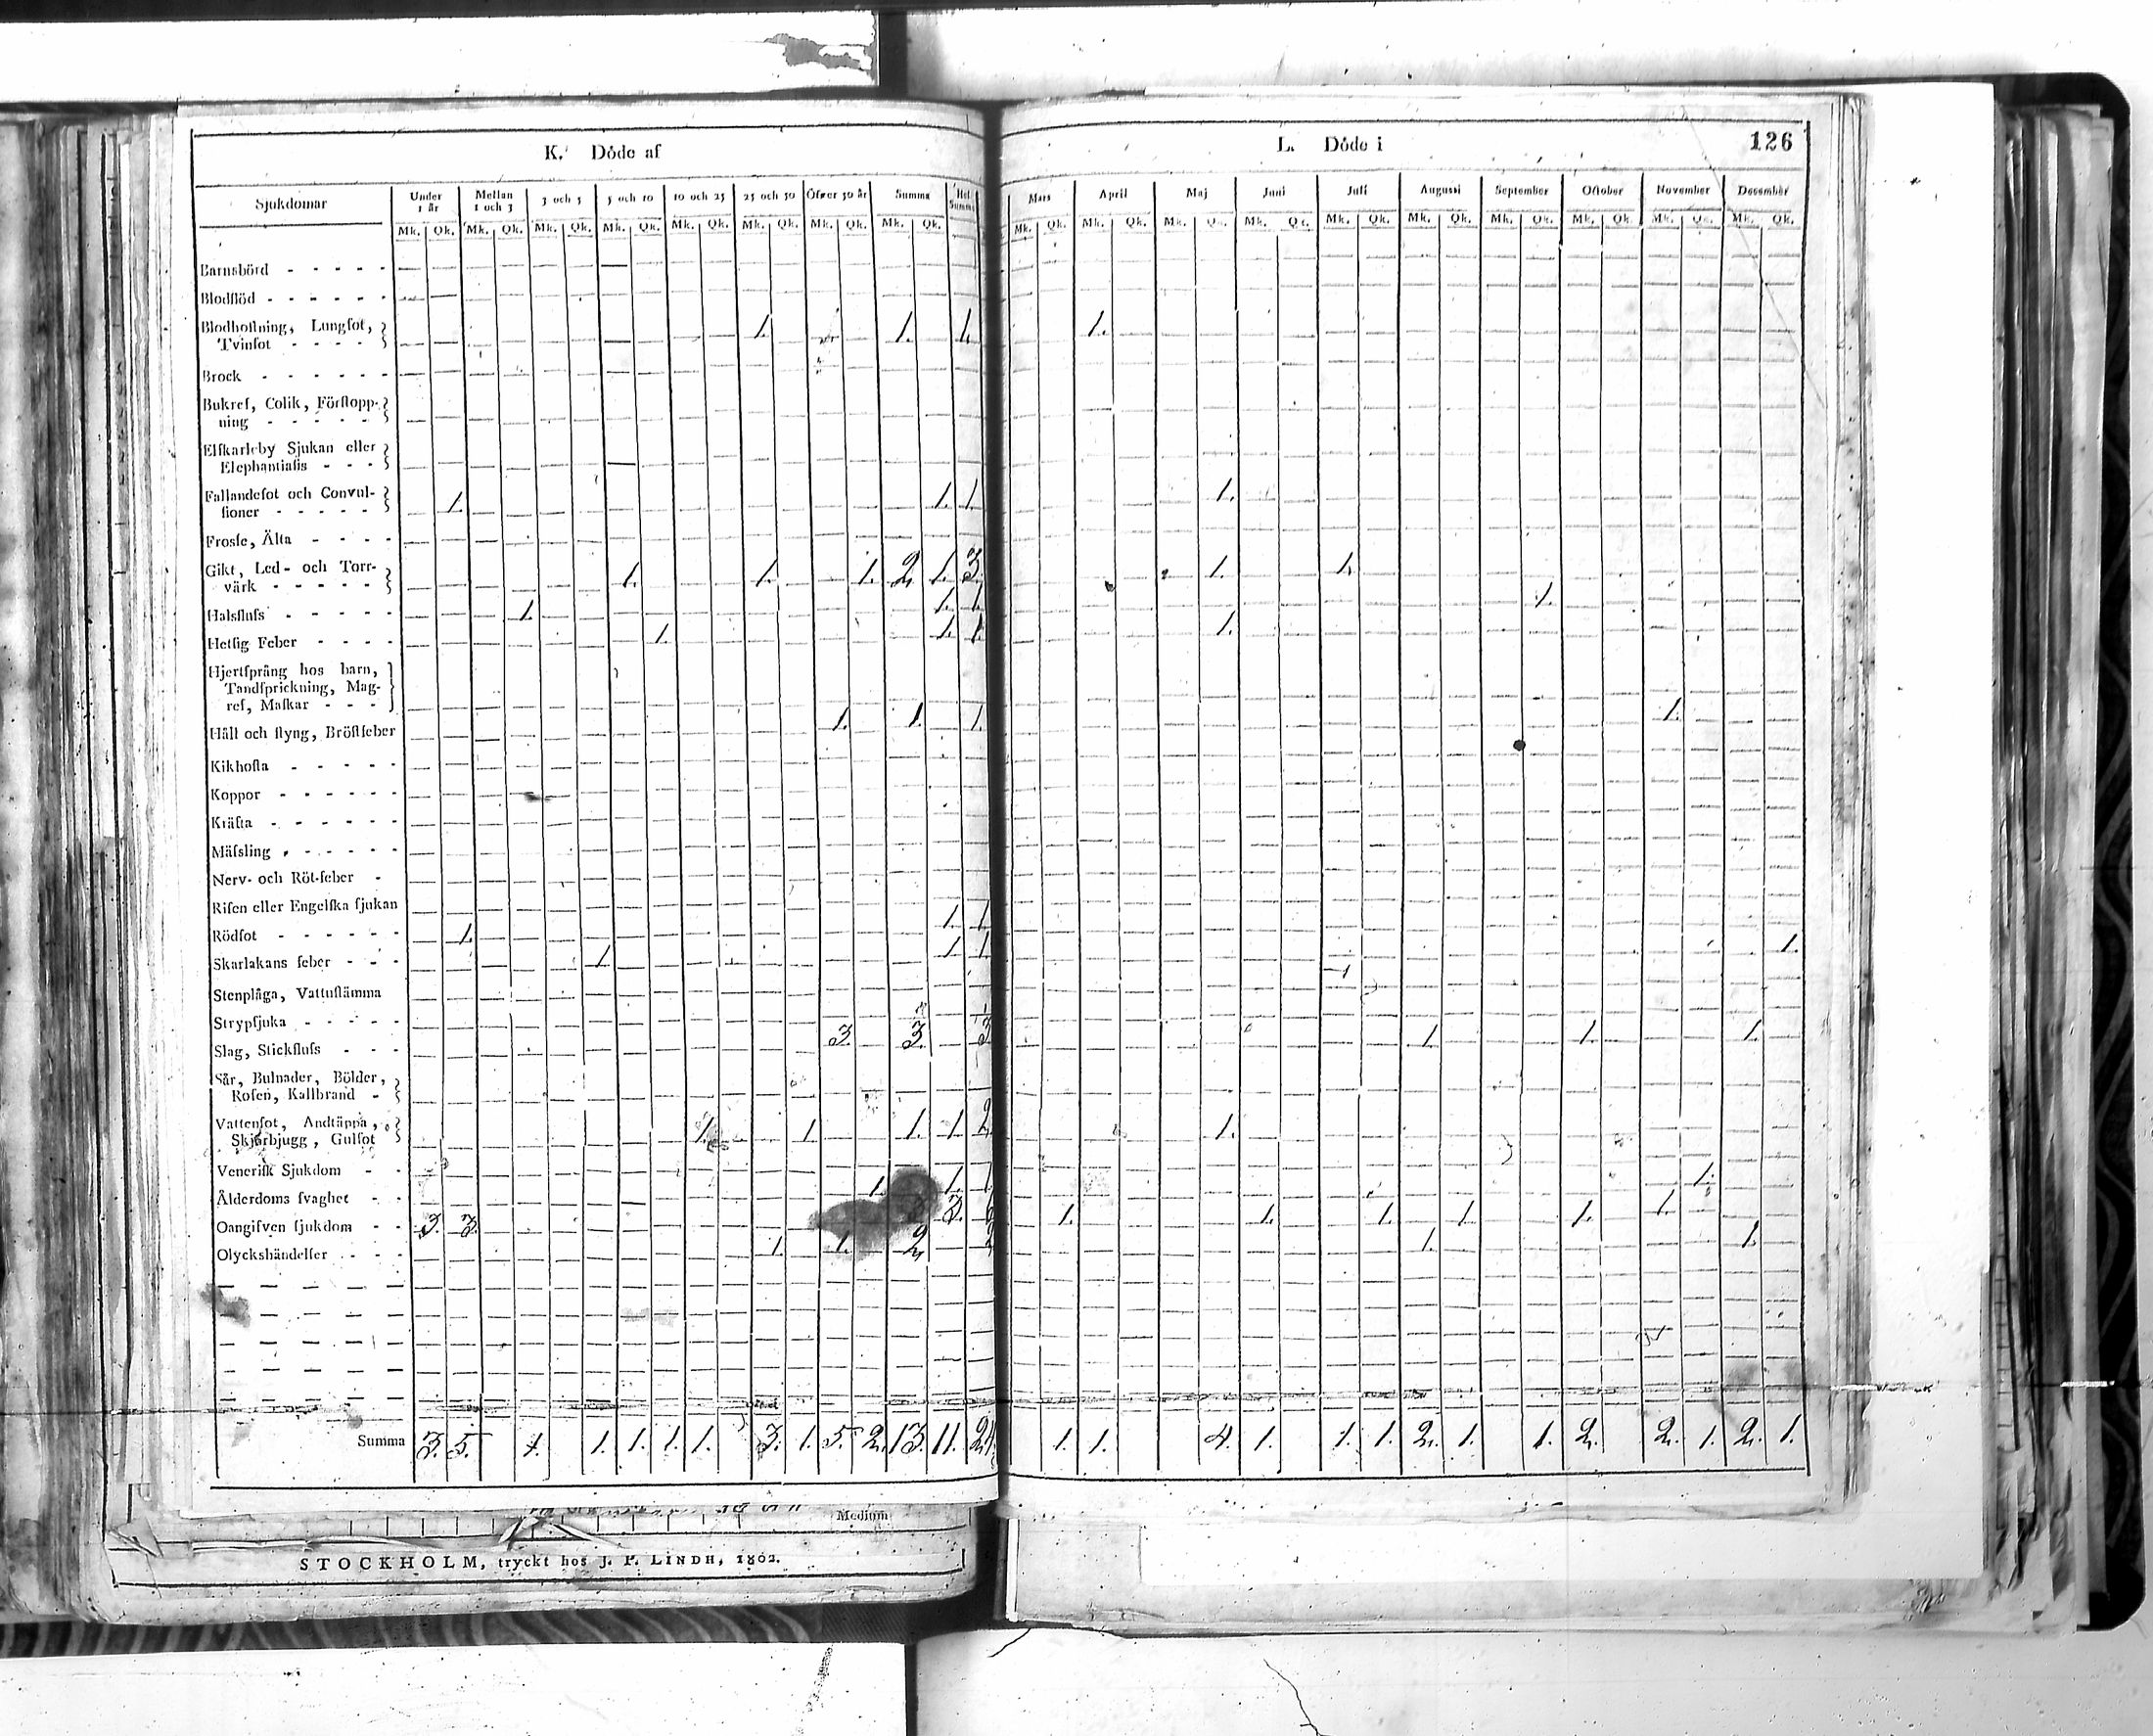 K. Döde af
L. Döde i 126
Sjukdomar Under 1 år Mellan 1 och 3 3 och 5 5 och 10 10 och 25 25 och 50 Öfver 50 år Summa Hel Summa
Mk. Qk. Mk. Qk. Mk. Qk. Mk. Qk. Mk. Qk. Mk. Qk. Mk. Qk. Mk. Qk.
Mars April Maj Juni Juli Augusti September October November December
Mk. Qk. Mk. Qk. Mk. Qk. Mk. Qk. Mk. Qk. Mk. Qk. Mk. Qk. Mk. Qk. Mk. Qk. Mk. Qk.
Barnsbörd
Blodflöd
Blodhostning, Lungsot,
Tvinsot 1. 1. 1. 1.
Brock
Bukref, Colik, Förstopp-
ning
Elfkarleby Sjukan eller
Elephantiasis
Fallandesot och Convul-
sioner 1. 1. 1. 1.
Frossa, Älta
Gikt, Led- och Torr-
värk 1. 1. 1. 2. 1. 3. 1. 1.
Halsfluss 1. 1. 1. 1.
Hetsig Feber 1. 1. 1. 1.
Hjertsprång hos barn,
Tandsprickning, Mag-
ref, Maskar
Håll och styng, Bröstfeber 1. 1. 1. 1.
Kikhosta
Koppor
Kräfta
Mässling
Nerv- och Röt-feber
Risen eller Engelska sjukan
Rödsot 1. 1. 1.
Skarlakans feber 1 1. 1 1.
Stenplåga, Vattustämma
Strypsjuka
Slag, Stickfluss 3. 3. 3 1. 1. 1.
Sår, Bulnader, Bölder,
Rosen, Kallbrand
Vattensot, Andtäppa,
Skjörbjugg, Gulsot 1. 1. 1. 1 2. 1.
Venerisk Sjukdom
Ålderdoms svaghet 1. 1. 1 1.
Oangifven sjukdom 3. 3. 3. 1. 1. 1. 1. 1. 1.
Olyckshändelser 1. 1. 2. 2 1. 1.
Summa 3. 5. 1. 1. 1. 1. 1. 3. 1. 5. 2. 13. 11. 24. 1. 1. 4. 1. 1. 1. 2. 1. 1. 2. 2. 1. 2. 1.
Medium
STOCKHOLM, tryckt hos J. P. LINDH, 1802.